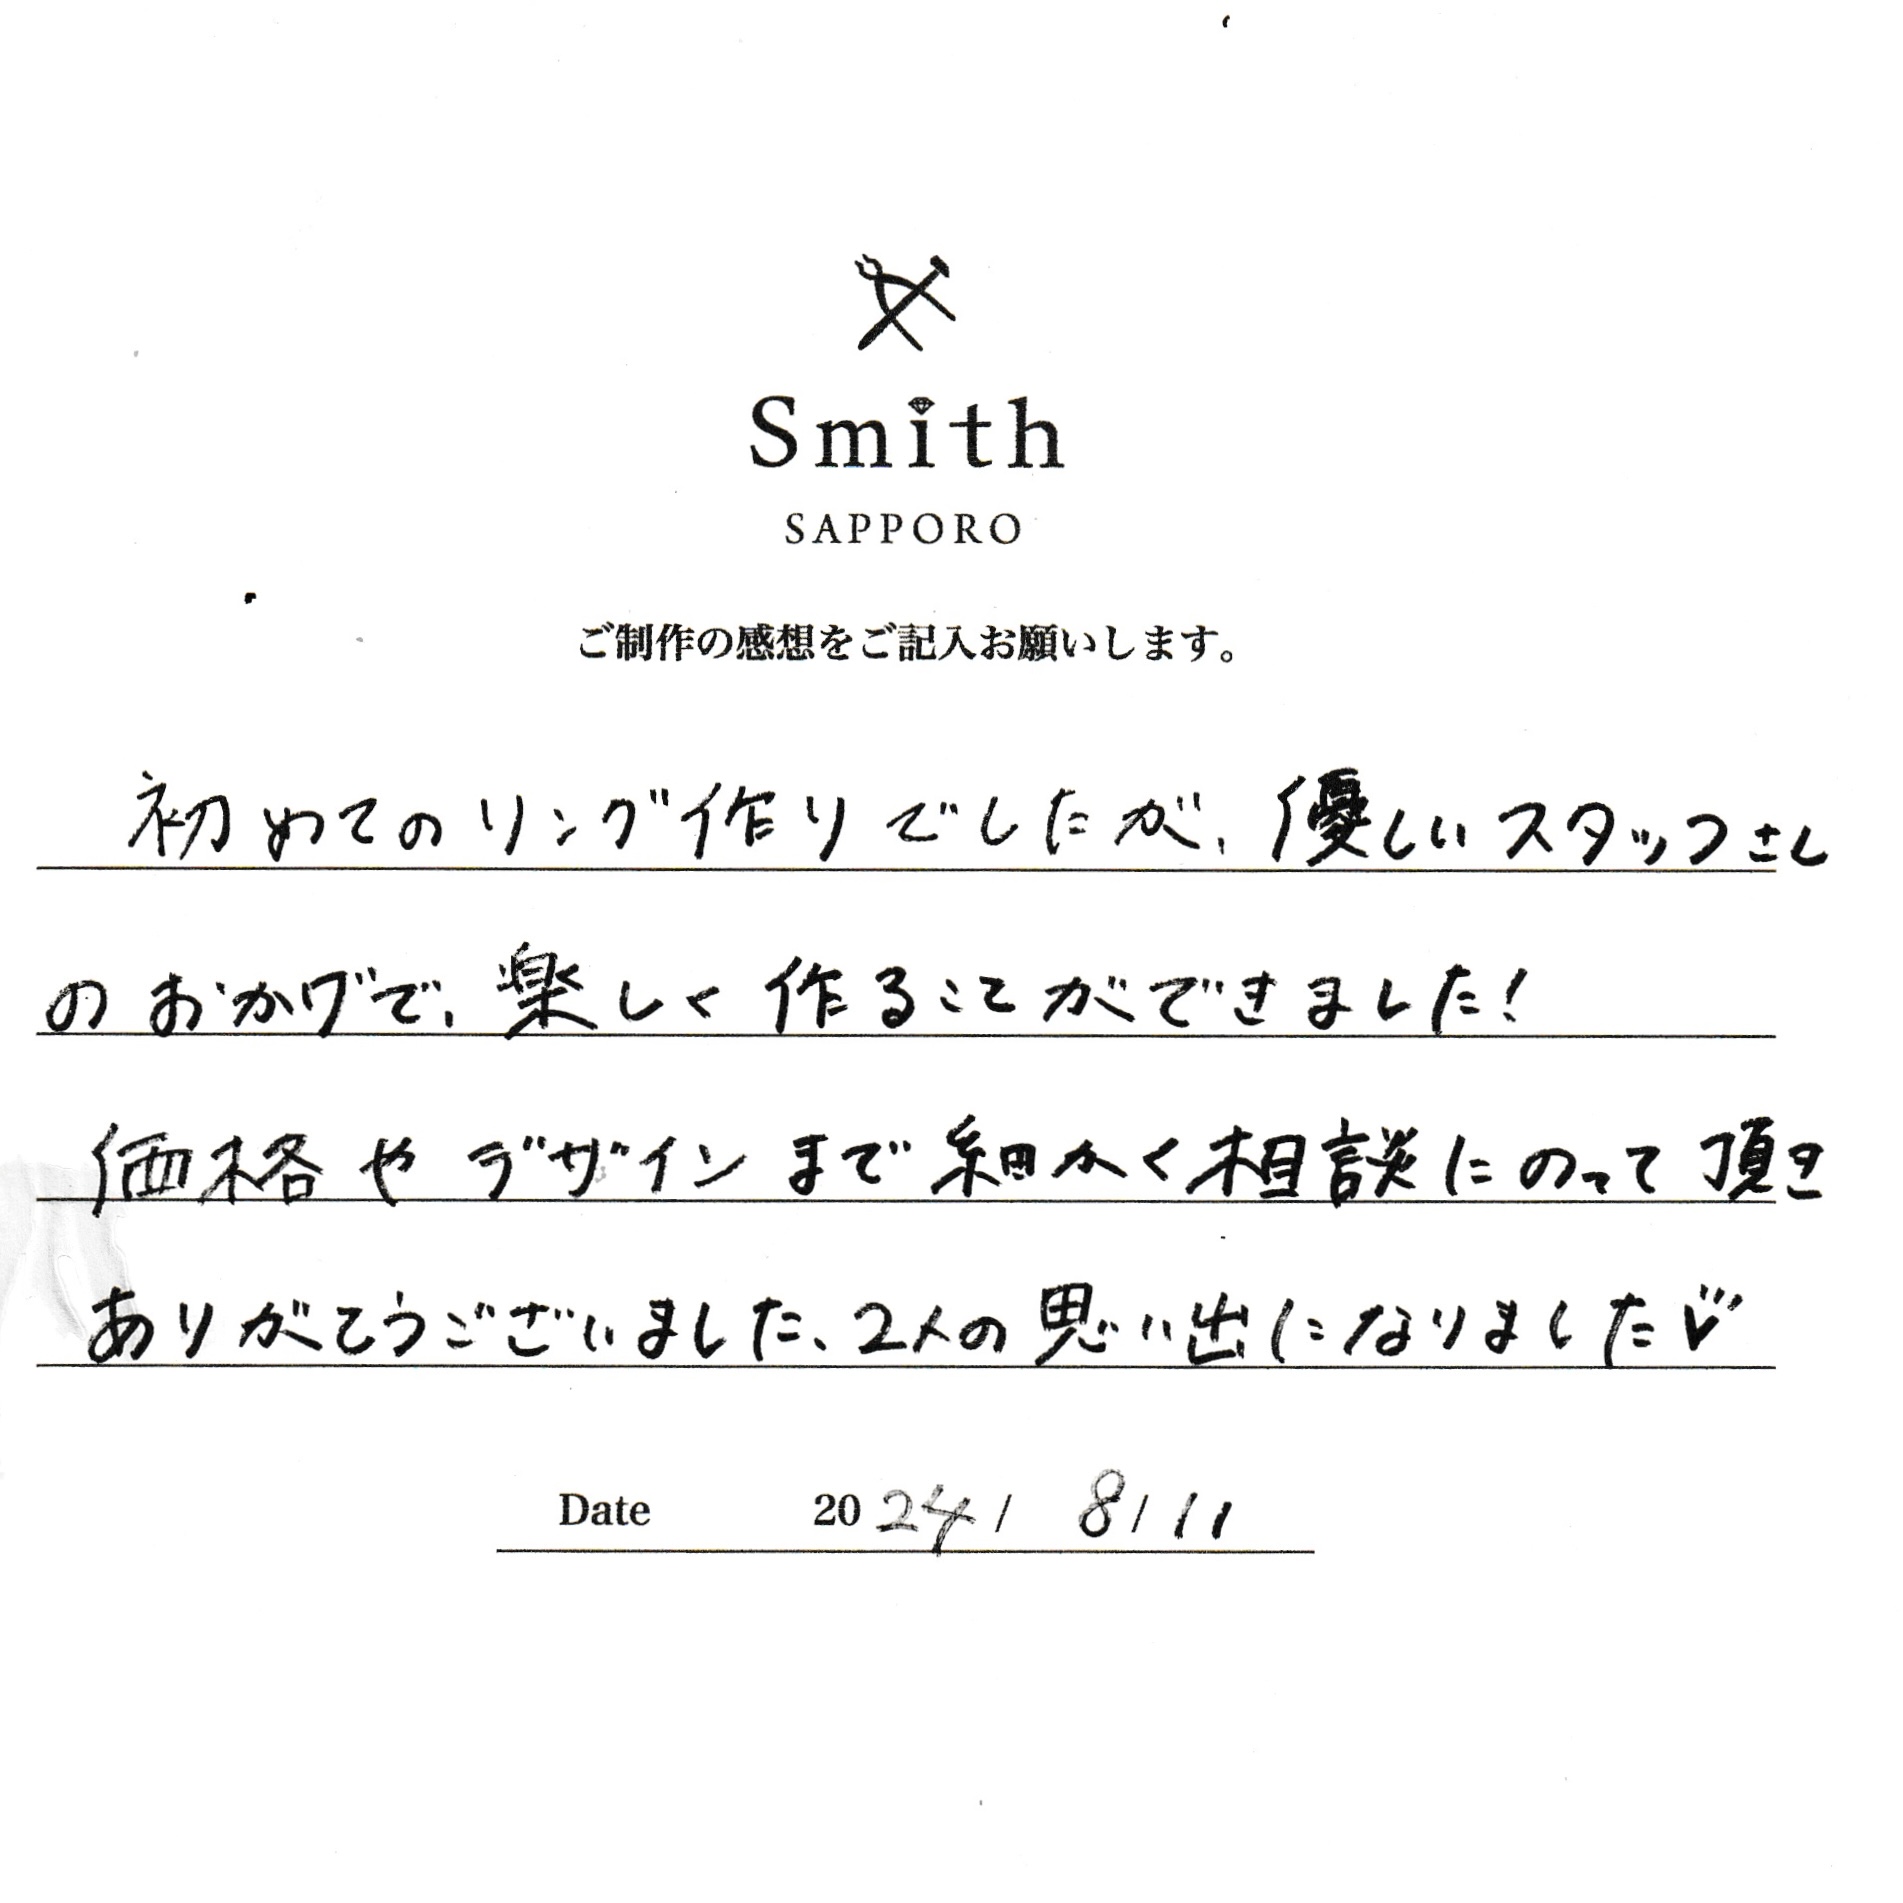 Smith
SAPPORO
ご制作の感想をご記入お願いします。
初めてのリング作りでしたが、優しいスタッフさん
のおかげで、楽しく作ることができました!
価格やデザインまで細かく相談にのって頂き
ありがとうございました、2人の思い出になりました♡
Date 2024/ 8/11